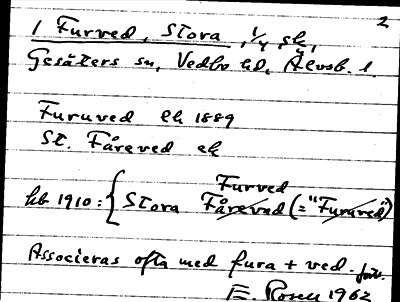 2
1 Furved, Stora, 1/4 sk,
Gesäters sn, Vedbo hd, Älvsb. l.
Furuved ek 1889
St. Fåreved ek
Furved
kb 1910: { Stora Fåreved (= "Furuved")
Associeras ofta med fura + ved. forts.
E. Rosell 1962